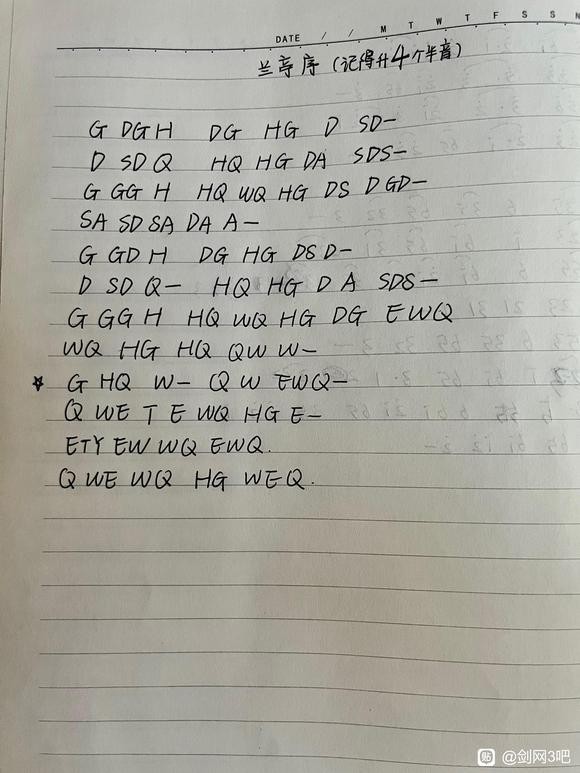 DATE / / M T W T F S S
兰亭序(记得升4个半音)
G DGH DG HG D SD-
D SD Q HQ HG DA SDS-
G GG H HQ WQ HG DS D GD-
SA SD SA DA A-
G GD H DG HG DS D-
D SD Q- HQ HG D A SDS-
G GG H HQ WQ HG DG EWQ
WQ HG HQ QW W-
☆ G HQ W- QW EWQ-
Q WE T E WQ HG E-
ETY EW WQ EWQ.
Q WE WQ HG WEQ.
贴 @剑网3吧